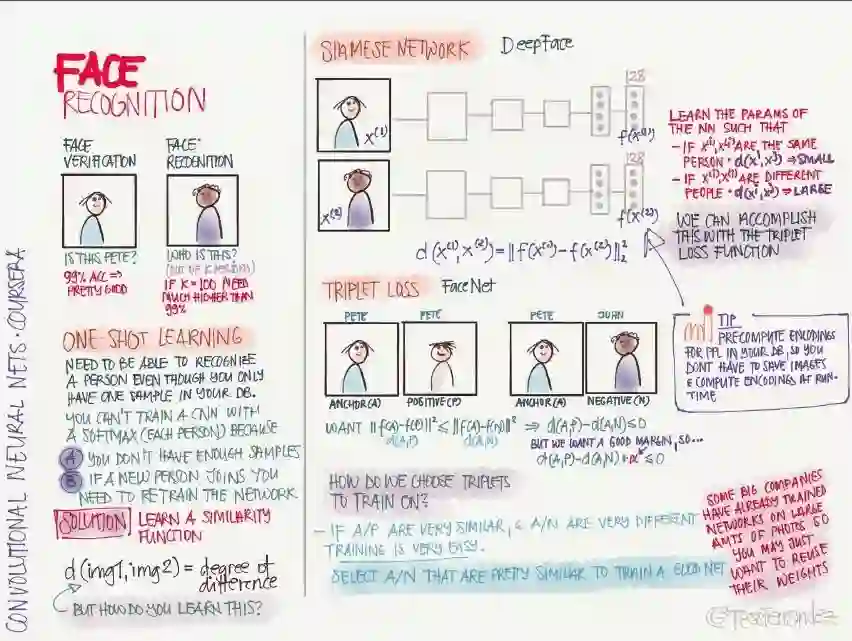 CONVOLUTIONAL NEURAL NETS · COURSERA
FACE
RECOGNITION
FACE
VERIFICATION
IS THIS PETE?
99% ACC =>
PRETTY GOOD
FACE
RECOGNITION
WHO IS THIS?
(OUT OF K PERSONS)
IF K=100 NEED
MUCH HIGHER THAN
99%
ONE-SHOT LEARNING
NEED TO BE ABLE TO RECOGNIZE
A PERSON EVEN THOUGH YOU ONLY
HAVE ONE SAMPLE IN YOUR DB.
YOU CAN'T TRAIN A CNN WITH
A SOFTMAX (EACH PERSON) BECAUSE
A YOU DON'T HAVE ENOUGH SAMPLES
B IF A NEW PERSON JOINS YOU
NEED TO RETRAIN THE NETWORK
SOLUTION LEARN A SIMILARITY
FUNCTION
d(img1,img2) = degree of
difference
BUT HOW DO YOU LEARN THIS?
SIAMESE NETWORK DeepFace
x⁽¹⁾
128
f(x⁽¹⁾)
x⁽²⁾
128
f(x⁽²⁾)
d(x⁽¹⁾,x⁽²⁾)=||f(x⁽¹⁾)-f(x⁽²⁾)||²₂
LEARN THE PARAMS OF
THE NN SUCH THAT
- IF x⁽ⁱ⁾,x⁽ʲ⁾ ARE THE SAME
PERSON · d(xⁱ,xʲ) => SMALL
- IF x⁽ⁱ⁾x⁽ʲ⁾ ARE DIFFERENT
PEOPLE · d(xⁱ,xʲ) = LARGE
WE CAN ACCOMPLISH
THIS WITH THE TRIPLET
LOSS FUNCTION
TRIPLET LOSS FaceNet
PETE PETE PETE JOHN
ANCHOR(A) POSITIVE(P) ANCHOR(A) NEGATIVE(N)
WANT ||f(A)-f(P)||² ≤ ||f(A)-f(N)||² => d(A,P)-d(A,N)≤0
d(A,P) d(A,N)
BUT WE WANT A GOOD MARGIN, SO...
d(A,P)-d(A,N)+α ≤0
TIP
PRECOMPUTE ENCODINGS
FOR PPL IN YOUR DB, SO YOU
DONT HAVE TO SAVE IMAGES
& COMPUTE ENCODINGS AT RUN-
TIME
HOW DO WE CHOOSE TRIPLETS
TO TRAIN ON?
- IF A/P ARE VERY SIMILAR, & A/N ARE VERY DIFFERENT
TRAINING IS VERY EASY.
SELECT A/N THAT ARE PRETTY SIMILAR TO TRAIN A GOOD NET
SOME BIG COMPANIES
HAVE ALREADY TRAINED
NETWORKS ON LARGE
AMTS OF PHOTOS SO
YOU MAY JUST
WANT TO REUSE
THEIR WEIGHTS
@TessFerrandez